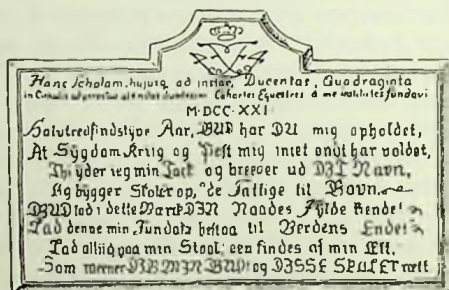 Hanc Scholam, hujusq. ad instar, Ducentas, Quadraginta
in Cohortes Equestres a me institutes fundavi
M·DCC·XXI
Halvtredsindstyve Aar, GUD har DU mig opholdet,
At Sygdom Kriig og Pest mig intet ondt har voldet,
Thi yder ieg min Tack og breeder ud DIT Navn,
Og bygger Skoler op, de Fattige til Bavn.
GUD lad i dette Værck DIN Naades Fylde kiende!
Lad denne min Fundatz bestaa til Verdens Ende!
Lad altiid paa min Stool een findes af min Ætt,
Som meener DIG MIN GUD! og DISSE SKOLER rætt